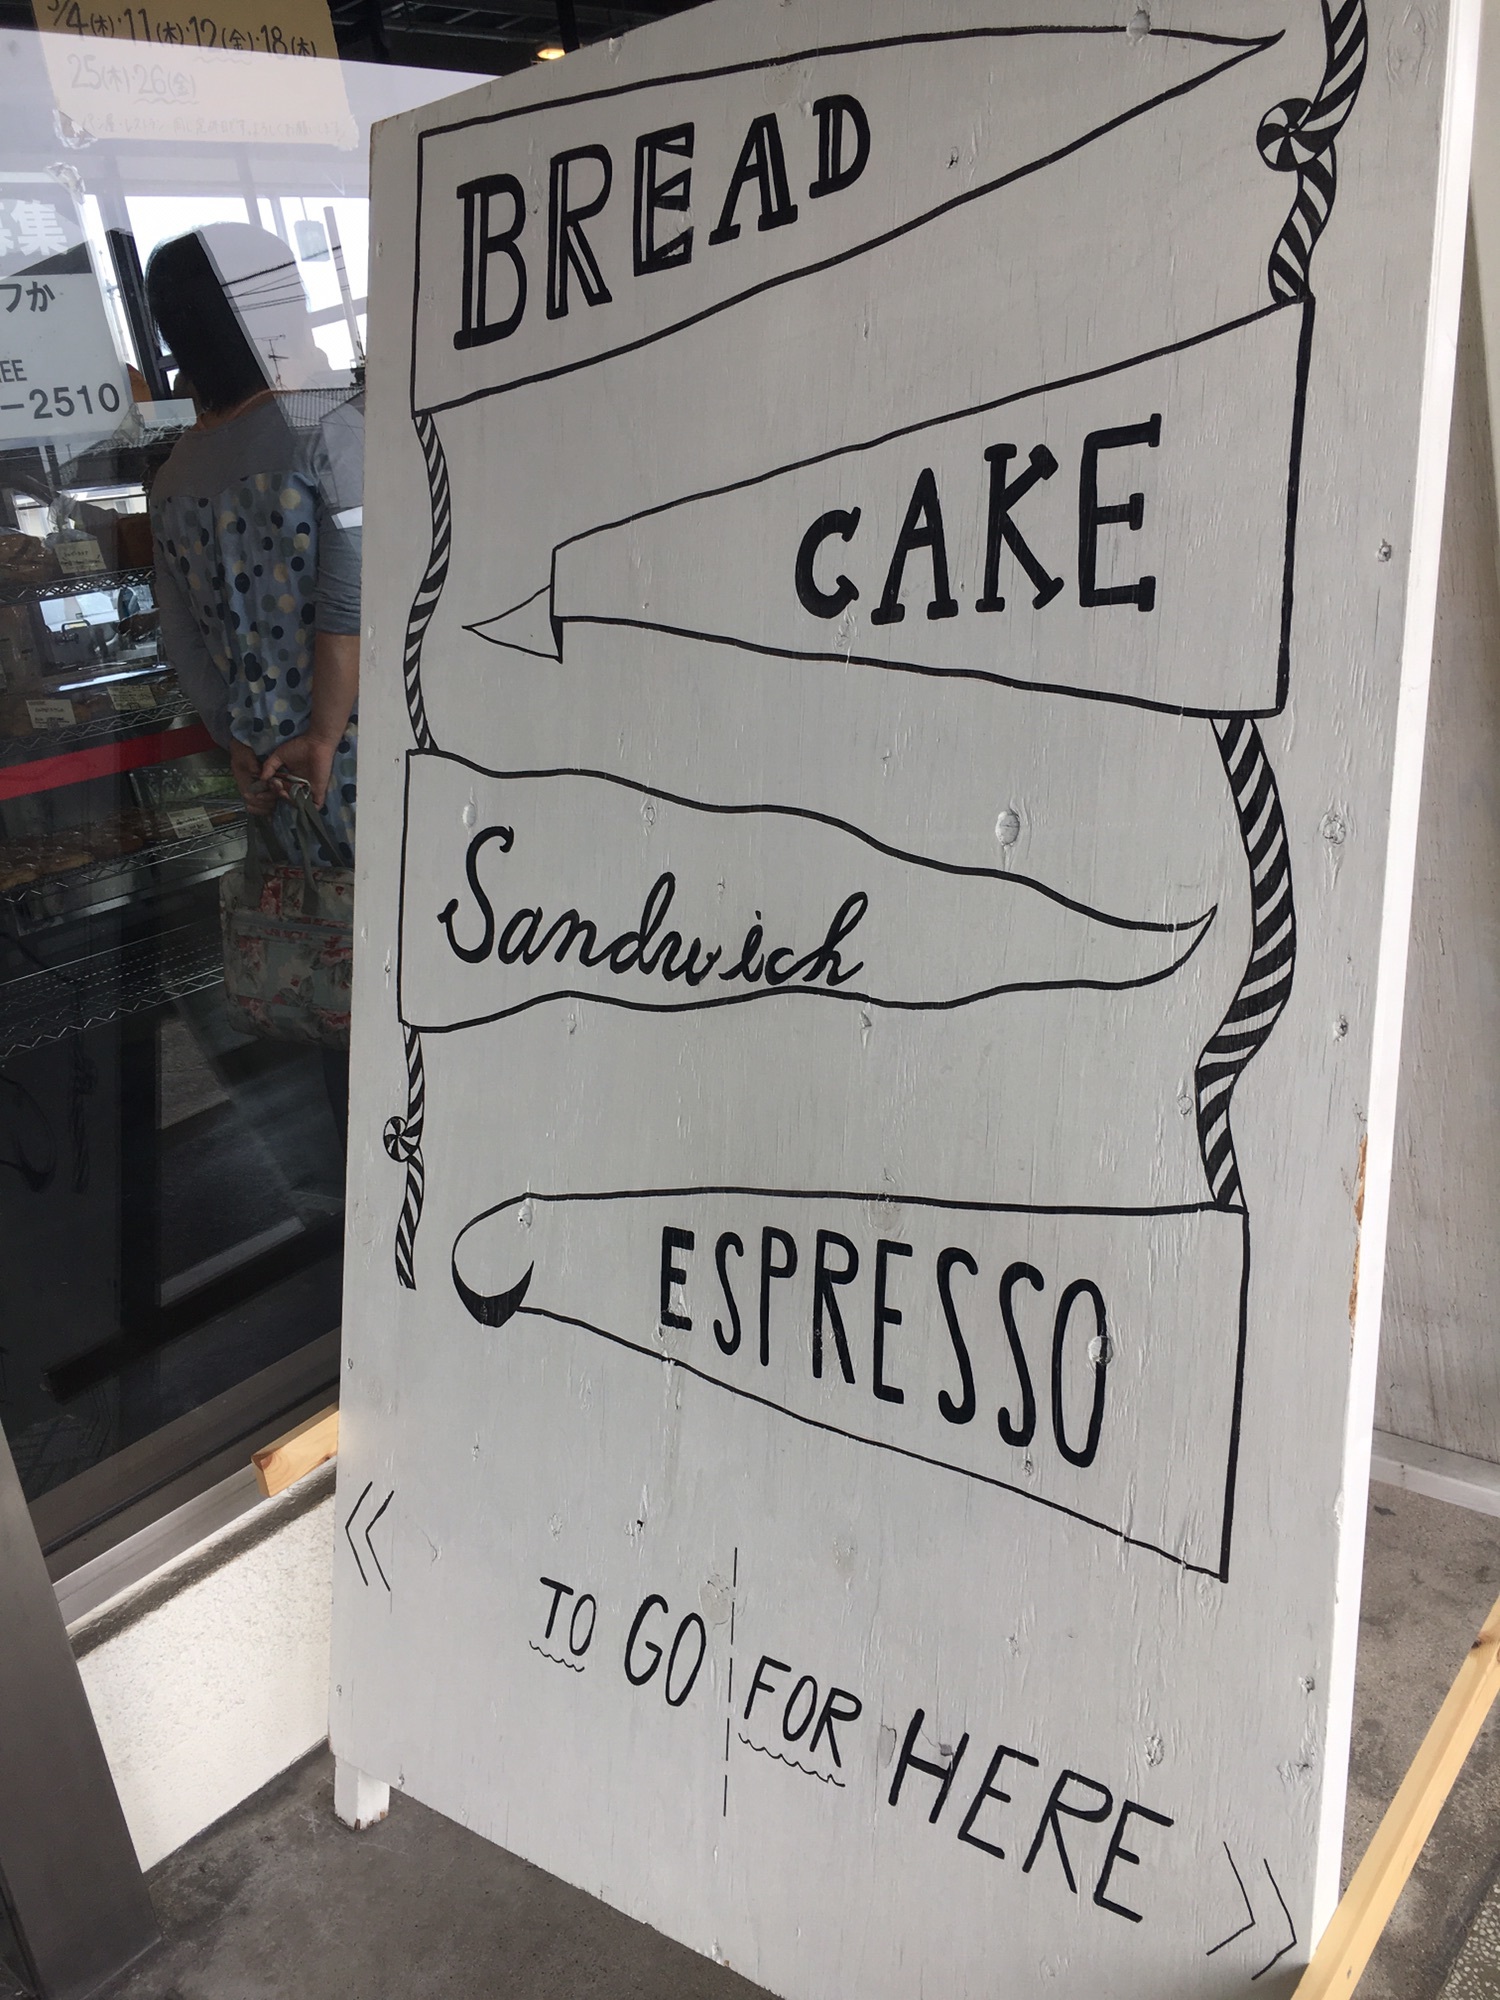 4(木)・11(木)・12(金)・18(木)
25(木)・26(金)
募集
フか
EE
-2510
BREAD
CAKE
Sandwich
ESPRESSO
<< TO GO FOR HERE >>